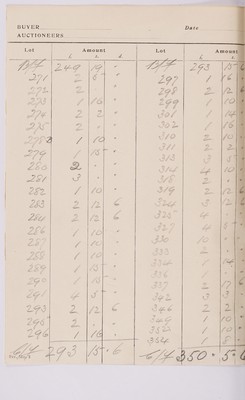 BUYER
Date
AUCTIONEERS
Lot Amount
£ s d
B/f 249 19 "
271 2 6 "
272 2 " "
273 1 16 "
274 2 2 "
275 2 " "
1 10 "
279 1 15 "
280 2 " "
281 3 " "
282 1 10 "
283 2 12 6
284 2 12 6
286 1 10 "
287 1 10 "
288 1 10 "
289 1 15 "
290 1 15 "
291 4 5 "
293 2 12 6
295 2 " "
296 1 16 "
c/f 293 15 6
Lot Amount
£ s
B/f 293 15
297 1 16
298 2 12 6
299 1 10
301 1 14
302 1 16
310 2 10
311 2 2
313 3 5
314 4 10
318 2
319 2 12 6
324 3 12 6
325 4
327 4 5
330 10
333 2
334 1 14
336 1
337 2 12 6
342 3 3
346 2 2
349 1 10
1 10
354 1 5
c/f 350 5 6